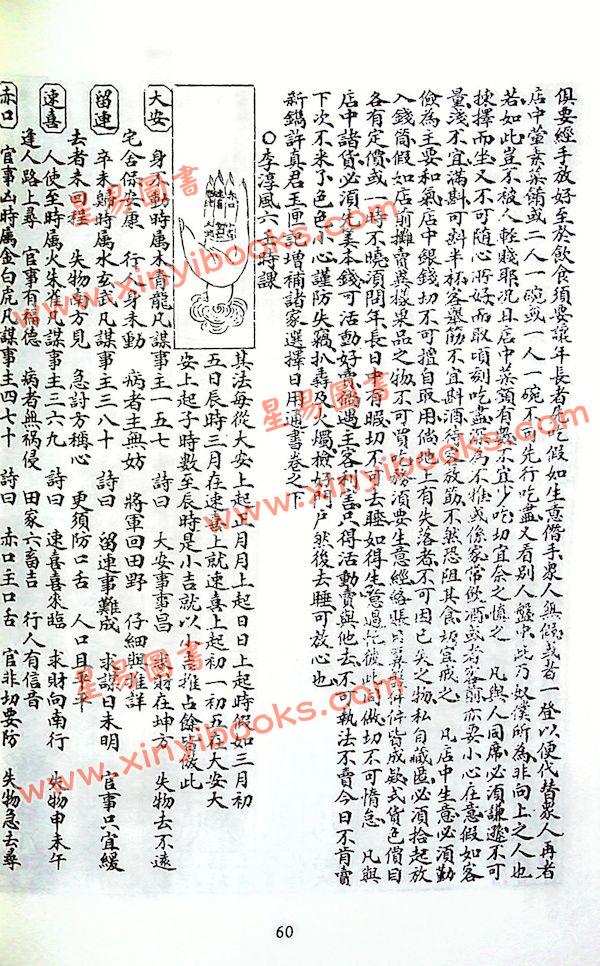 俱要經手放好至於飲食須要讓年長者先吃假如生意僭手眾人無暇或者一登以便代替眾人再者
店中葷素菜餚或二人一碗或一人一碗不可先行吃盡又看別人盤中此乃奴僕所為非向上之人也
若如此豈不被人輕賤耶况且店中菜蔬有數不宜少吃切宜奈之慎之 凡與人同席必須謙遜不可
揀擇而坐又不可隨心所好而取頃刻吃盡為不雅或係家常飲酒或者客前亦要小心在意假如客
量淺不宜滿斟可斟半杯客舉筋不宜斟酒待客放筯不然恐阻其食切宜戒之 凡店中生意必須勤
儉為主要和氣店中銀錢切不可擅自取用倘地上有失落者不可因已失之物私自藏匿必須拾起放
入錢筒假如店前攤賣異樣果品之物不可買吃務須要生意經絡賬目算件件皆成欵式貨色價目
各有定價或一時不曉須問年長日中有暇切不可去睡如得生意過忙彼此同做切不可惰怠 凡與
店中諸貨必須先算本錢可活動好賣倘遇主客可言只得活動賣與他去不可執法不賣今日不肯賣
下次不來了色色小心謹防失竊扒壽及火燭檢好門户然後去睡可放心也
新鐫許真君玉匣記增補諸家選擇日用通書卷之下
○李淳風六壬時課
其法每從大安上起正月月上起日日上起時假如三月初
五日辰時三月在速喜上就速喜上起初一初五在大安大
安上起子時數至辰時是小吉就以小吉推占餘皆倣此
大安 身不動時属木青龍凡謀事主一五七 詩曰 大安事事昌 求財在坤方 失物去不遠
宅舍保安康 行人身未動 病者主無妨 將軍回田野 仔細與推詳
留連 卒未歸時属水玄武凡謀事主二八十 詩曰 留連事難成 求謀日未明 官事只宜緩
去者未回程 失物南方見 急討方稱心 更須防口舌 人口且平平
速喜 人便至時属火朱雀凡謀事主三六九 詩曰 速喜喜來臨 求財向南行 失物申未午
逢人路上尋 官事有福德 病者無禍侵 田家六畜吉 行人有信音
赤口 官事凶時属金白虎凡謀事主四七十 詩曰 赤口主口舌 官非切要防 失物急去尋
星易圖書
www.xinyibooks.com
星易圖書
www.xinyibooks.com
星易圖書
www.xinyibooks.com
60